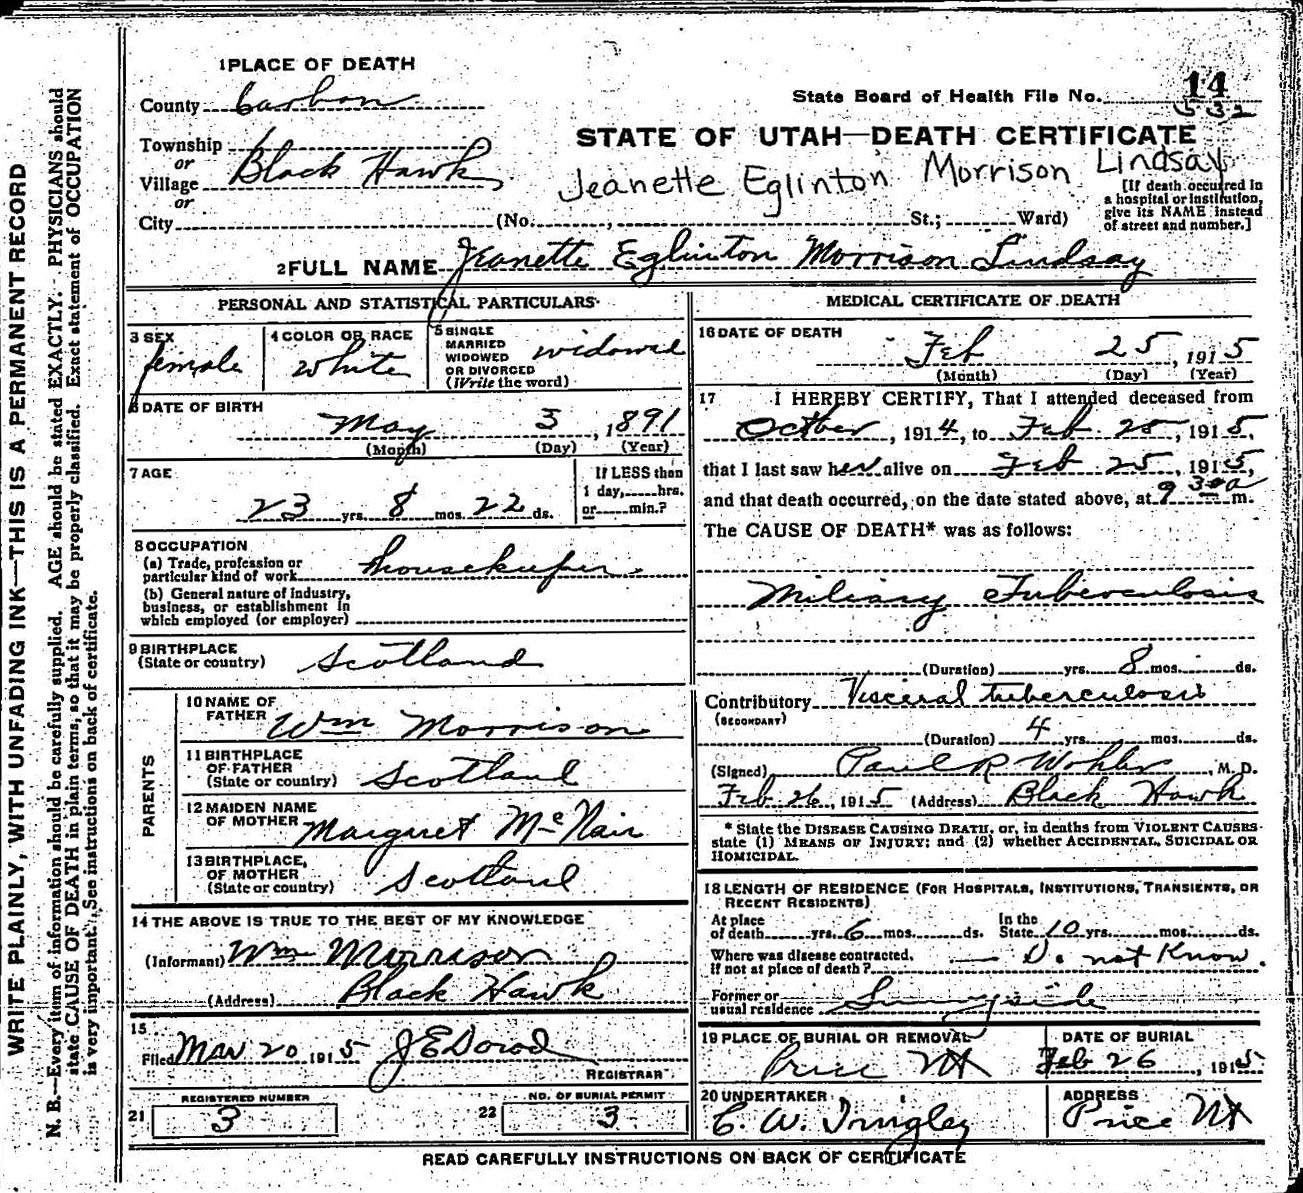 1 PLACE OF DEATH
County Carbon
State Board of Health File No. 14
532
Township
or
Village Black Hawk
or
City (No. , St.; Ward)
STATE OF UTAH—DEATH CERTIFICATE
Jeanette Eglinton Morrison Lindsay
[If death occurred in
a hospital or institution,
give its NAME instead
of street and number.]
2 FULL NAME Jeanette Eglinton Morrison Lindsay
PERSONAL AND STATISTICAL PARTICULARS
3 SEX
female
4 COLOR OR RACE
white
5 SINGLE
MARRIED
WIDOWED
OR DIVORCED
(Write the word)
widowed
6 DATE OF BIRTH
May 3, 1891
(Month) (Day) (Year)
7 AGE
23 yrs. 8 mos. 22 ds.
If LESS than
1 day, hrs.
or min.?
8 OCCUPATION
(a) Trade, profession or
particular kind of work housekeeper
(b) General nature of industry,
business, or establishment in
which employed (or employer)
9 BIRTHPLACE
(State or country) Scotland
PARENTS
10 NAME OF
FATHER Wm Morrison
11 BIRTHPLACE
OF FATHER
(State or country) Scotland
12 MAIDEN NAME
OF MOTHER Margret McNair
13 BIRTHPLACE,
OF MOTHER
(State or country) Scotland
14 THE ABOVE IS TRUE TO THE BEST OF MY KNOWLEDGE
(Informant) Wm Morrison
(Address) Black Hawk
15
Filed Mar 20 1915
REGISTRAR
21 REGISTERED NUMBER
3
22 NO. OF BURIAL PERMIT
3
MEDICAL CERTIFICATE OF DEATH
16 DATE OF DEATH
Feb 25, 1915
(Month) (Day) (Year)
17 I HEREBY CERTIFY, That I attended deceased from
October, 1914, to Feb. 25, 1915,
that I last saw her alive on Feb 25, 1915,
and that death occurred, on the date stated above, at 9 30 a m.
The CAUSE OF DEATH* was as follows:
Miliary Tuberculosis
(Duration) yrs. 8 mos. ds.
Contributory Visceral tuberculosis
(SECONDARY)
(Duration) 4 yrs. mos. ds.
(Signed) Paul R Wohler, M. D.
Feb 26, 1915 (Address) Black Hawk
* State the DISEASE CAUSING DEATH, or, in deaths from VIOLENT CAUSES
state (1) MEANS OF INJURY; and (2) whether ACCIDENTAL, SUICIDAL OR
HOMICIDAL.
18 LENGTH OF RESIDENCE (FOR HOSPITALS, INSTITUTIONS, TRANSIENTS, OR
RECENT RESIDENTS)
At place
of death yrs. 6 mos. ds. In the
State 10 yrs. mos. ds.
Where was disease contracted,
if not at place of death? — Do not Know.
Former or
usual residence Sunnyside
19 PLACE OF BURIAL OR REMOVAL
Price Ut
DATE OF BURIAL
Feb 26, 1915
20 UNDERTAKER
C. W. Tingley
ADDRESS
Price Ut
READ CAREFULLY INSTRUCTIONS ON BACK OF CERTIFICATE
WRITE PLAINLY, WITH UNFADING INK—THIS IS A PERMANENT RECORD
N. B.—Every item of information should be carefully supplied. AGE should be stated EXACTLY. PHYSICIANS should
state CAUSE OF DEATH in plain terms, so that it may be properly classified. Exact statement of OCCUPATION
is very important. See instructions on back of certificate.